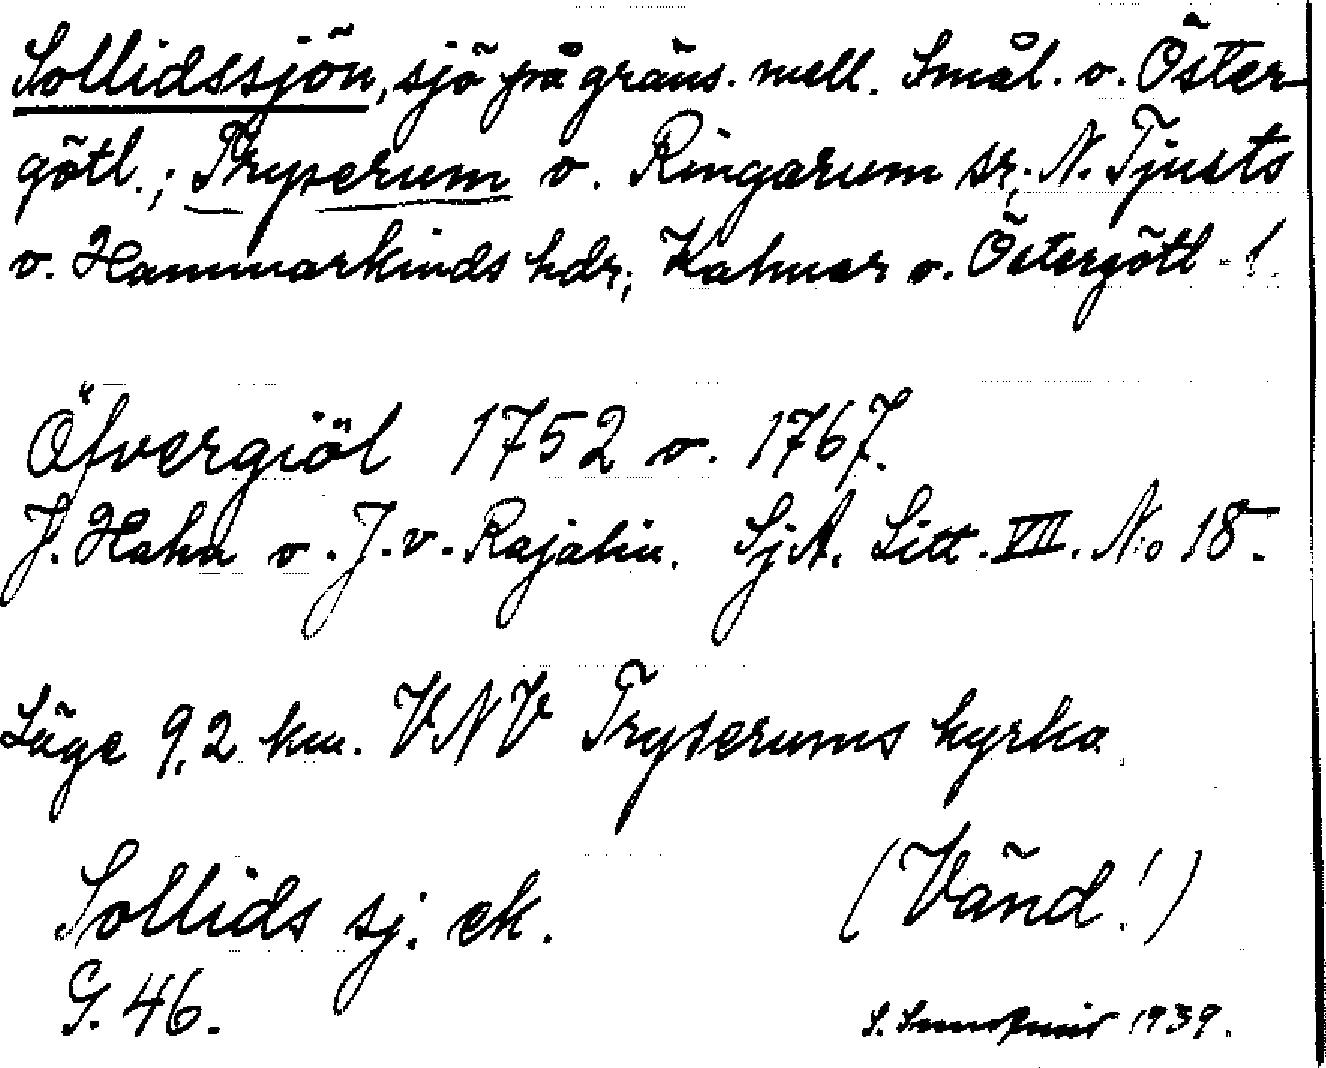 Sollidssjön, sjö på gräns. mell. Smål. o. Öster-
götl.; Tryserum o. Ringarum sr; N. Tjusts
o. Hammarkinds hdr; Kalmar o. Östergötl - l.
Öfvergiöl 1752 o. 1767.
J. Hahn o. J. v. Rajalin. SjA. Litt. VII. No 18.
Läge 9,2 km. VNV Tryserums kyrka
Sollids sj. ek. (Vänd!)
G. 46.
S. 1939.